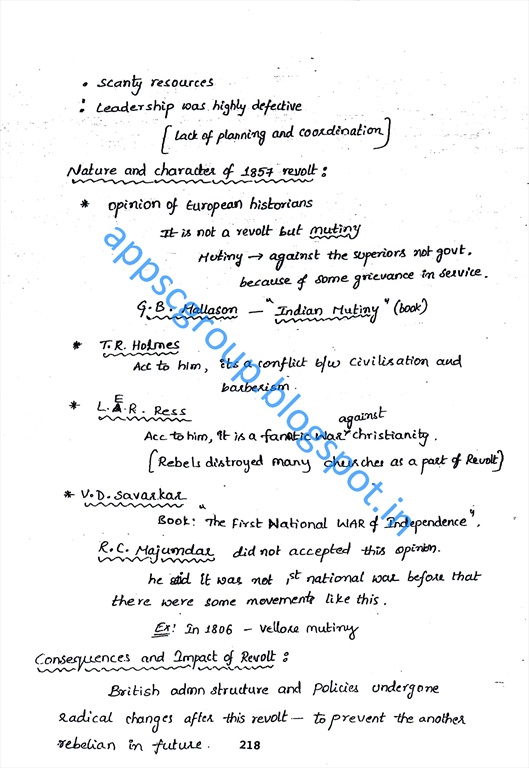 • scanty resources
• Leadership was highly defective
[Lack of planning and coordination]
Nature and character of 1857 revolt:
* opinion of European historians
It is not a revolt but mutiny
Mutiny → against the superiors not govt.
because of some grievance in service.
G.B. Mallason – "Indian Mutiny" (book)
* T.R. Holmes
Acc to him, its a conflict b/w civilisation and
barberism.
* L.E.R. Ress
against
Acc to him, it is a fanatic war christianity.
[Rebels distroyed many churches as a part of Revolt]
* V.D. Savarkar
Book: "The First National WAR of Independence".
R.C. Majumdar did not accepted this opinion.
he said It was not 1st national war before that
there were some movements like this.
Ex: In 1806 – vellore mutiny
Consequences and Impact of Revolt:
British admn structure and policies undergone
radical changes after this revolt – to prevent the another
rebelian in future.
218
appscgroup.blogspot.in